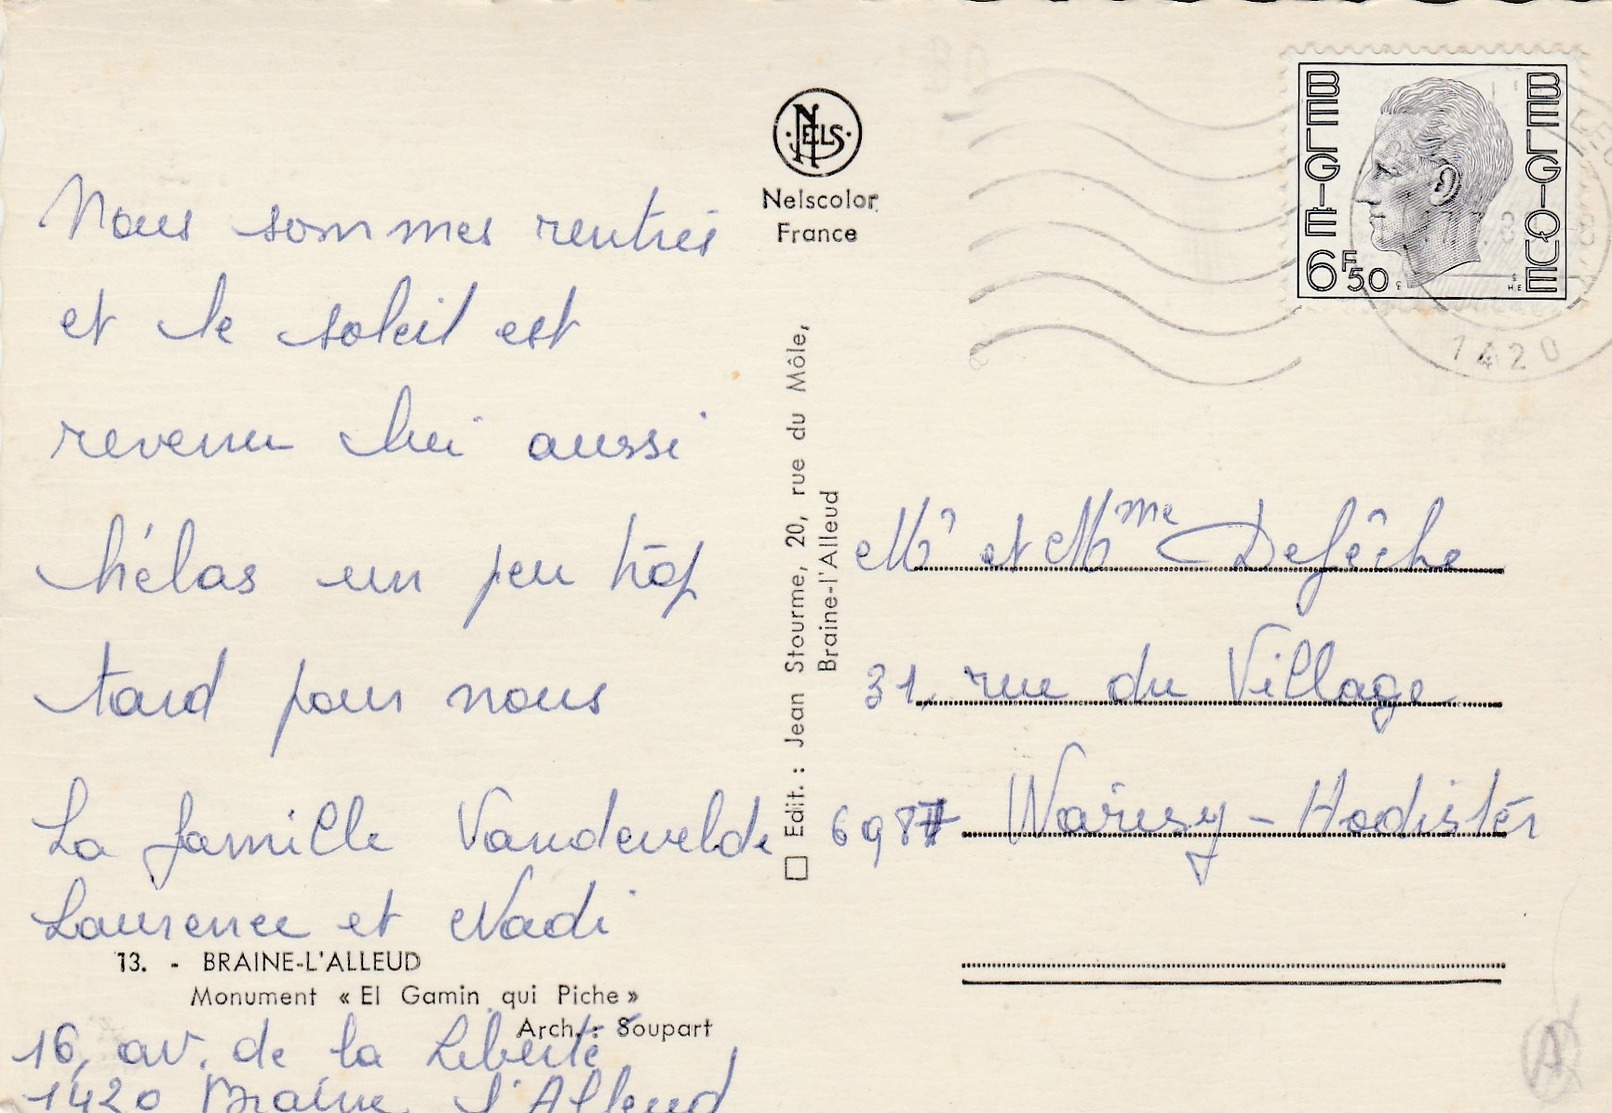 Nous sommes rentrés
et le soleil est
revenu lui aussi
hélas un peu trop
tard pour nous
La famille Vandevelde
Laurence et Nadi
13. - BRAINE-L'ALLEUD
Monument « El Gamin qui Piche »
Arch. : Soupart
16, av. de la Liberté
1420 Braine l'Alleud
NELS
Nelscolor
France
Edit. : Jean Stourme, 20, rue du Môle,
Braine-l'Alleud
BELGIË
BELGIQUE
6F50
1420
Mr et Mme Defêche
31, rue du Village
6987 - Hodister
A